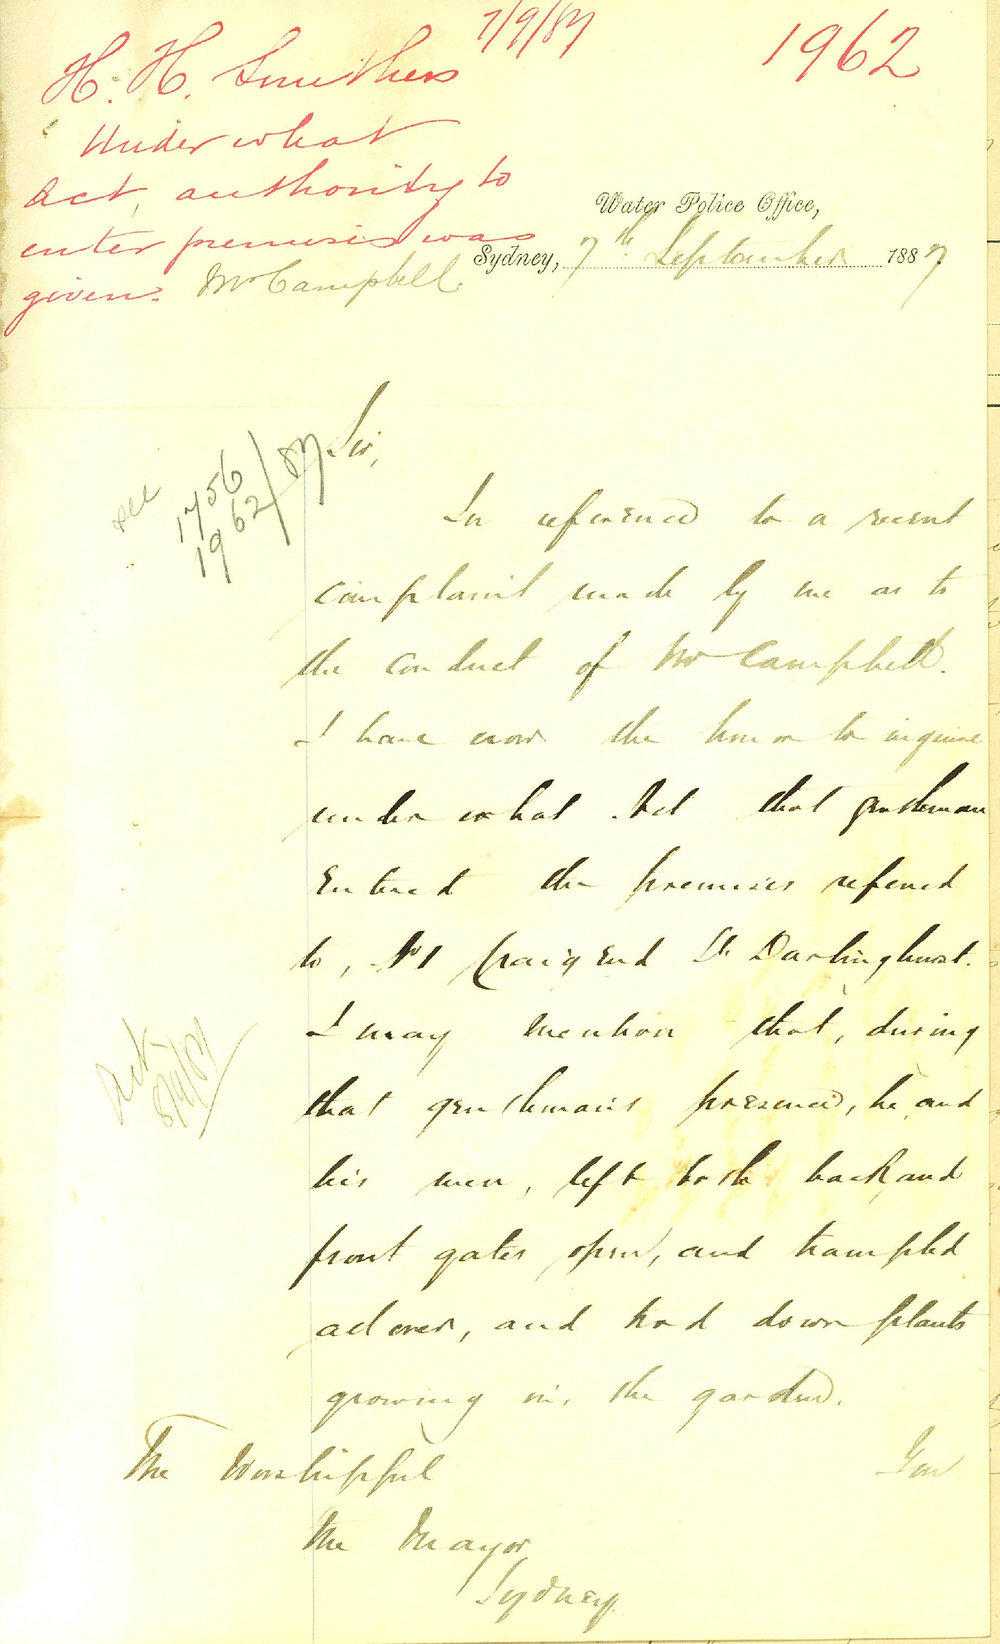 7/9/87
1962
H. H. Smithers
Under what
Act, authority to
enter premises was
given. Mr Campbell.
Water Police Office,
Sydney, 7th September 1887
Sir,
see 1756
1962/87
In reference to a recent
complaint made by me as to
the conduct of Mr Campbell.
I have now the honor to inquire
under what Act that gentleman
Entered the premises refered
to, No 1 Craigend St Darlinghurst.
I may mention that, during
that gentleman's presence, he and
his men, left both back and
front gates open, and trampled
all over, and trod down plants
growing in, the garden.
Ack
8/9/87
You
The Worshipful
The Mayor
Sydney